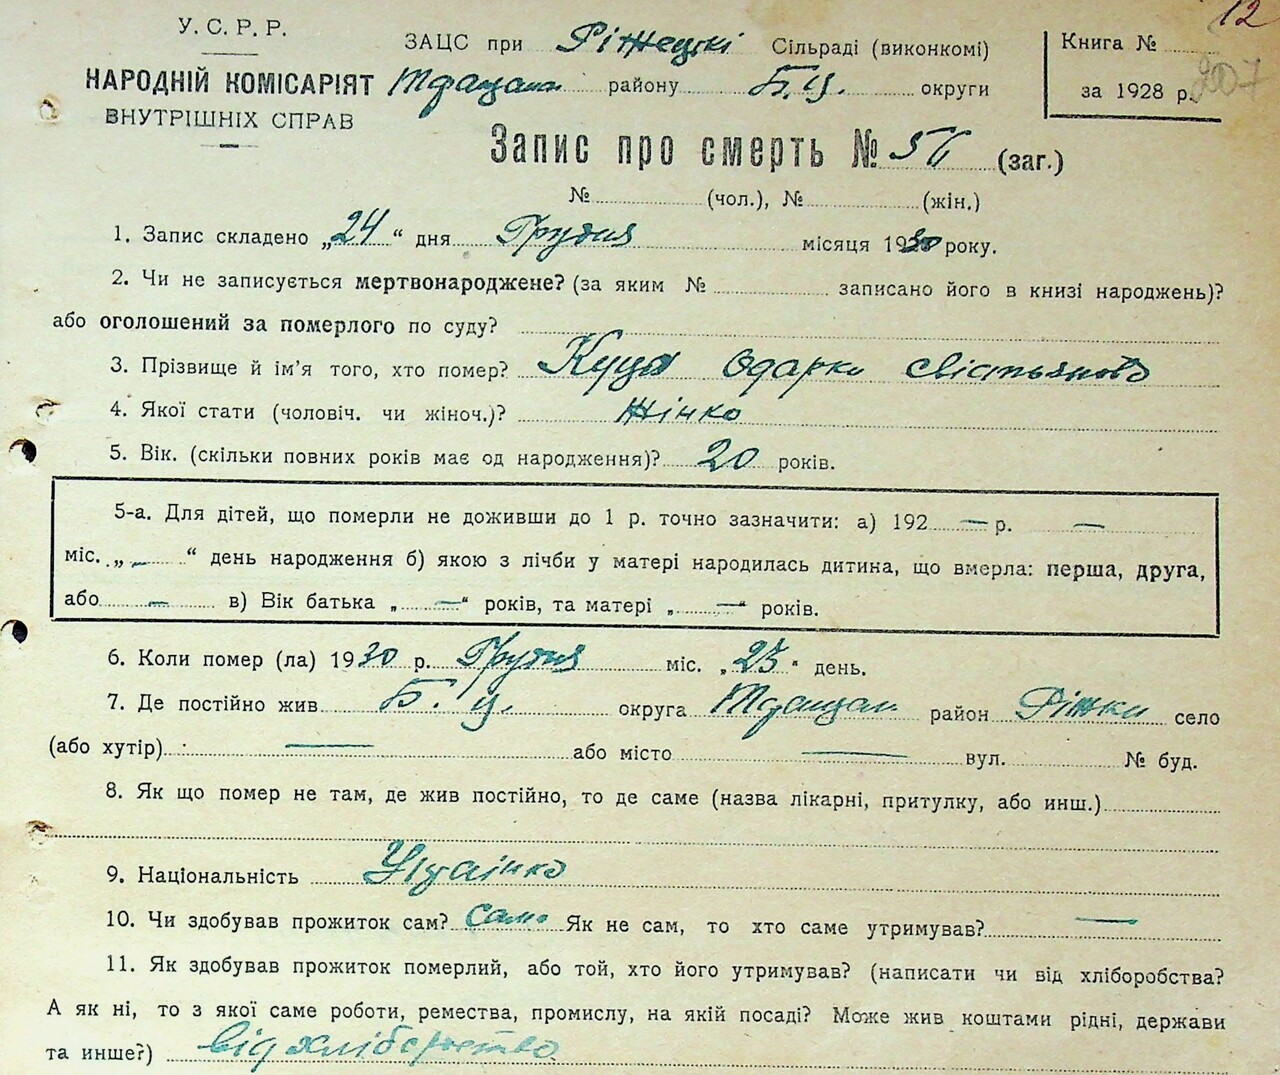 12
У. С. Р. Р.
НАРОДНІЙ КОМІСАРІЯТ
ВНУТРІШНІХ СПРАВ
ЗАЦС при Ріжецькі Сільраді (виконкомі)
району Б. Ц. округи
Книга №
за 1928 р. 207
Запис про смерть № 56 (заг.)
№ (чол.), № (жін.)
1. Запис складено „24“ дня Грудня місяця 1930 року.
2. Чи не записується мертвонароджене? (за яким № записано його в книзі народжень)?
або оголошений за померлого по суду?
3. Прізвище й ім'я того, хто помер? Куца Одарка
4. Якої стати (чоловіч. чи жіноч.)? Жінко
5. Вік. (скільки повних років має од народження)? 20 років.
5-а. Для дітей, що померли не доживши до 1 р. точно зазначити: а) 192 — р. —
міс. „ — “ день народження б) якою з лічби у матері народилась дитина, що вмерла: перша, друга,
або — в) Вік батька „ — “ років, та матері „ — “ років.
6. Коли помер (ла) 1930 р. Грудня міс. „23“ день.
7. Де постійно жив Б. Ц. округа район Ріжки село
(або хутір) — або місто — вул. № буд.
8. Як що помер не там, де жив постійно, то де саме (назва лікарні, притулку, або инш.)
9. Національність Українка
10. Чи здобував прожиток сам? Само Як не сам, то хто саме утримував? —
11. Як здобував прожиток померлий, або той, хто його утримував? (написати чи від хліборобства?
А як ні, то з якої саме роботи, ремества, промислу, на якій посаді? Може жив коштами рідні, держави
та инше?) від хліборобство